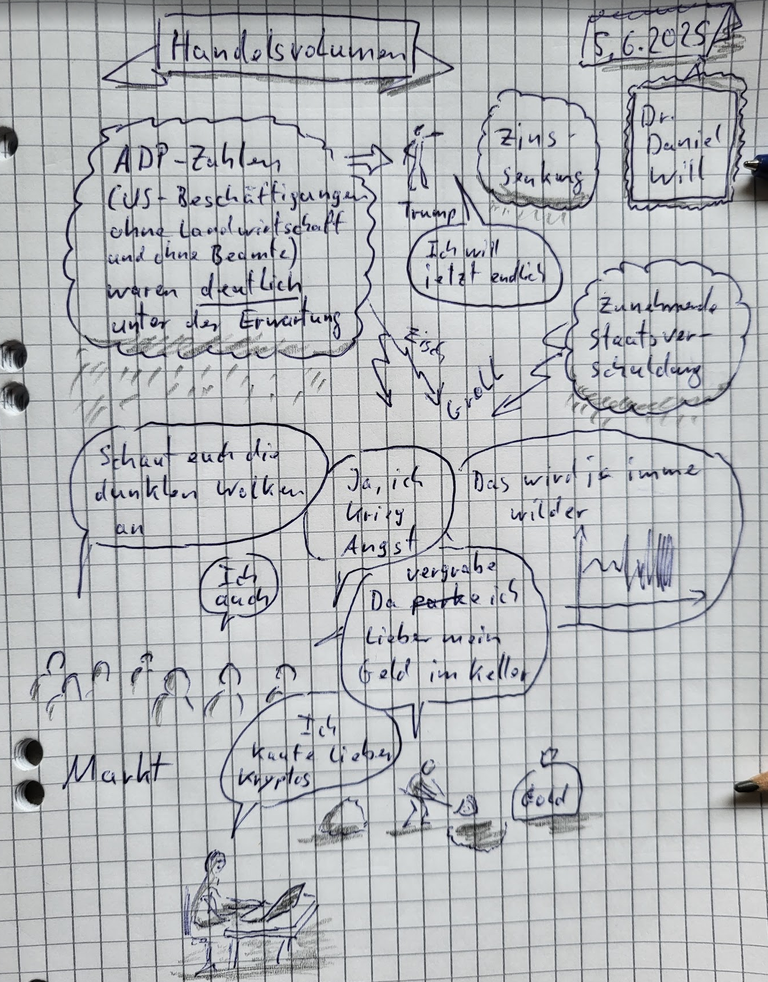 Handelsvolumen
5.6.2025
Dr.
Daniel
Will
ADP-Zahlen
(US-Beschäftigungen
ohne Landwirtschaft
und ohne Beamte)
waren deutlich
unter der Erwartung
Trump
Zins-
senkung
Ich will
jetzt endlich
Zunehmende
Staatsver-
schuldung
Zisch
Groll
Schaut euch die
dunklen Wolken
an
Ja, ich
krieg
Angst
Das wird ja imme
wilder
Ich
auch
vergrabe
Da ich
lieber mein
Geld im Keller
Markt
Ich
kaufe lieber
Kryptos